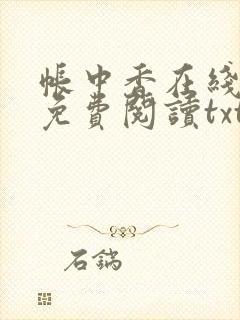 帳中香在綫
免費閱讀txt
石鍋